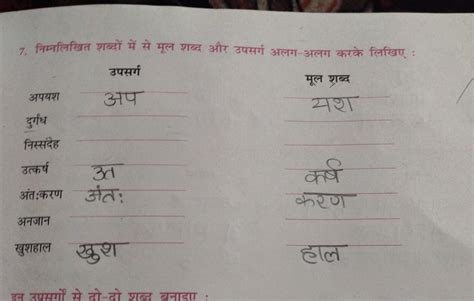 7. निम्नलिखित शब्दों में से मूल शब्द और उपसर्ग अलग-अलग करके लिखिए :
उपसर्ग मूल शब्द
अपयश अप यश
दुर्गंध
निस्संदेह
उत्कर्ष उत कर्ष
अंतःकरण अंतः करण
अनजान
खुशहाल खुश हाल
इन उपसर्गों से दो-दो शब्द बनाइए :